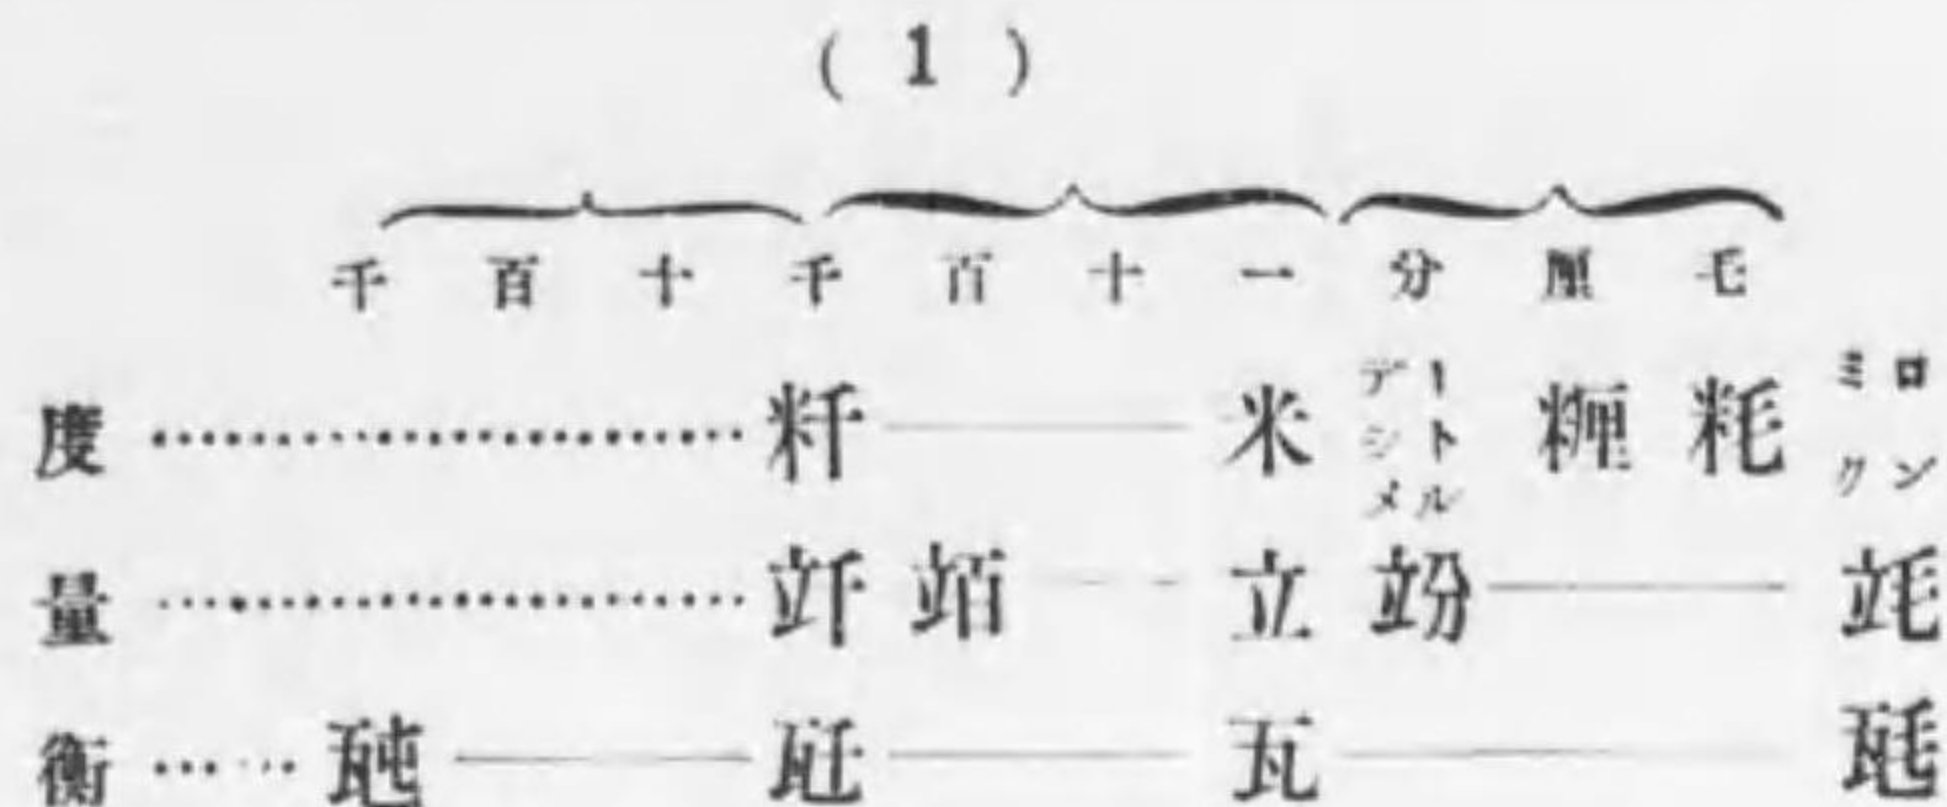 ( 1 )
千 百 十 千 百 十 一 分 厘 毛
度 粁 米 デシメートル 糎 粍 ミクロン
量 竏 竡 立 竕 竓
衡 瓲 瓩 瓦 瓱